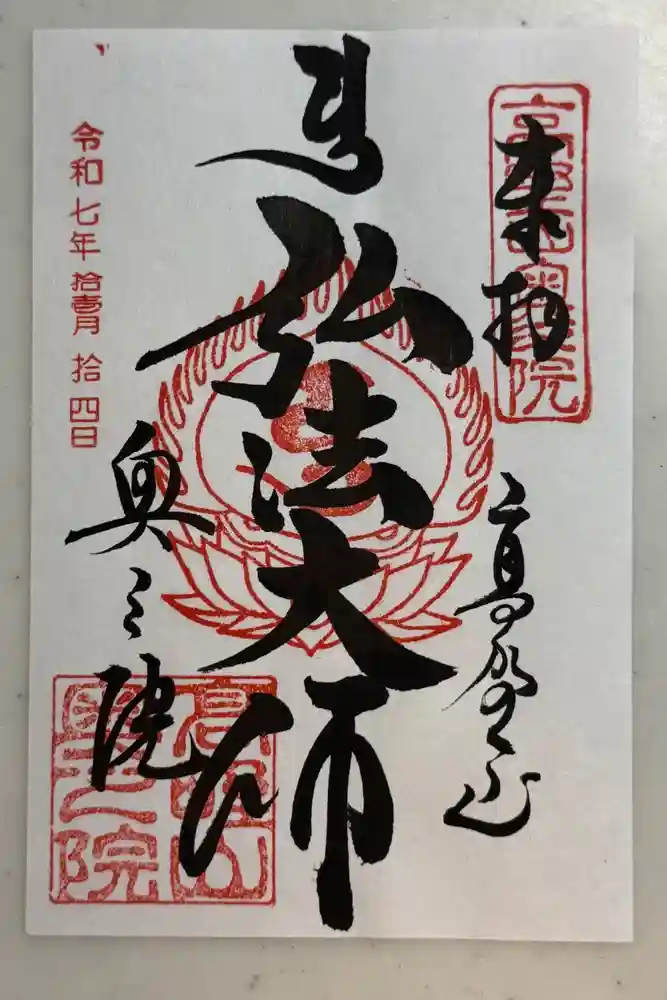 奉拝
高野山
弘法大師
奥之院
令和七年拾壹月拾四日
高野山奥之院
高野山奥之院